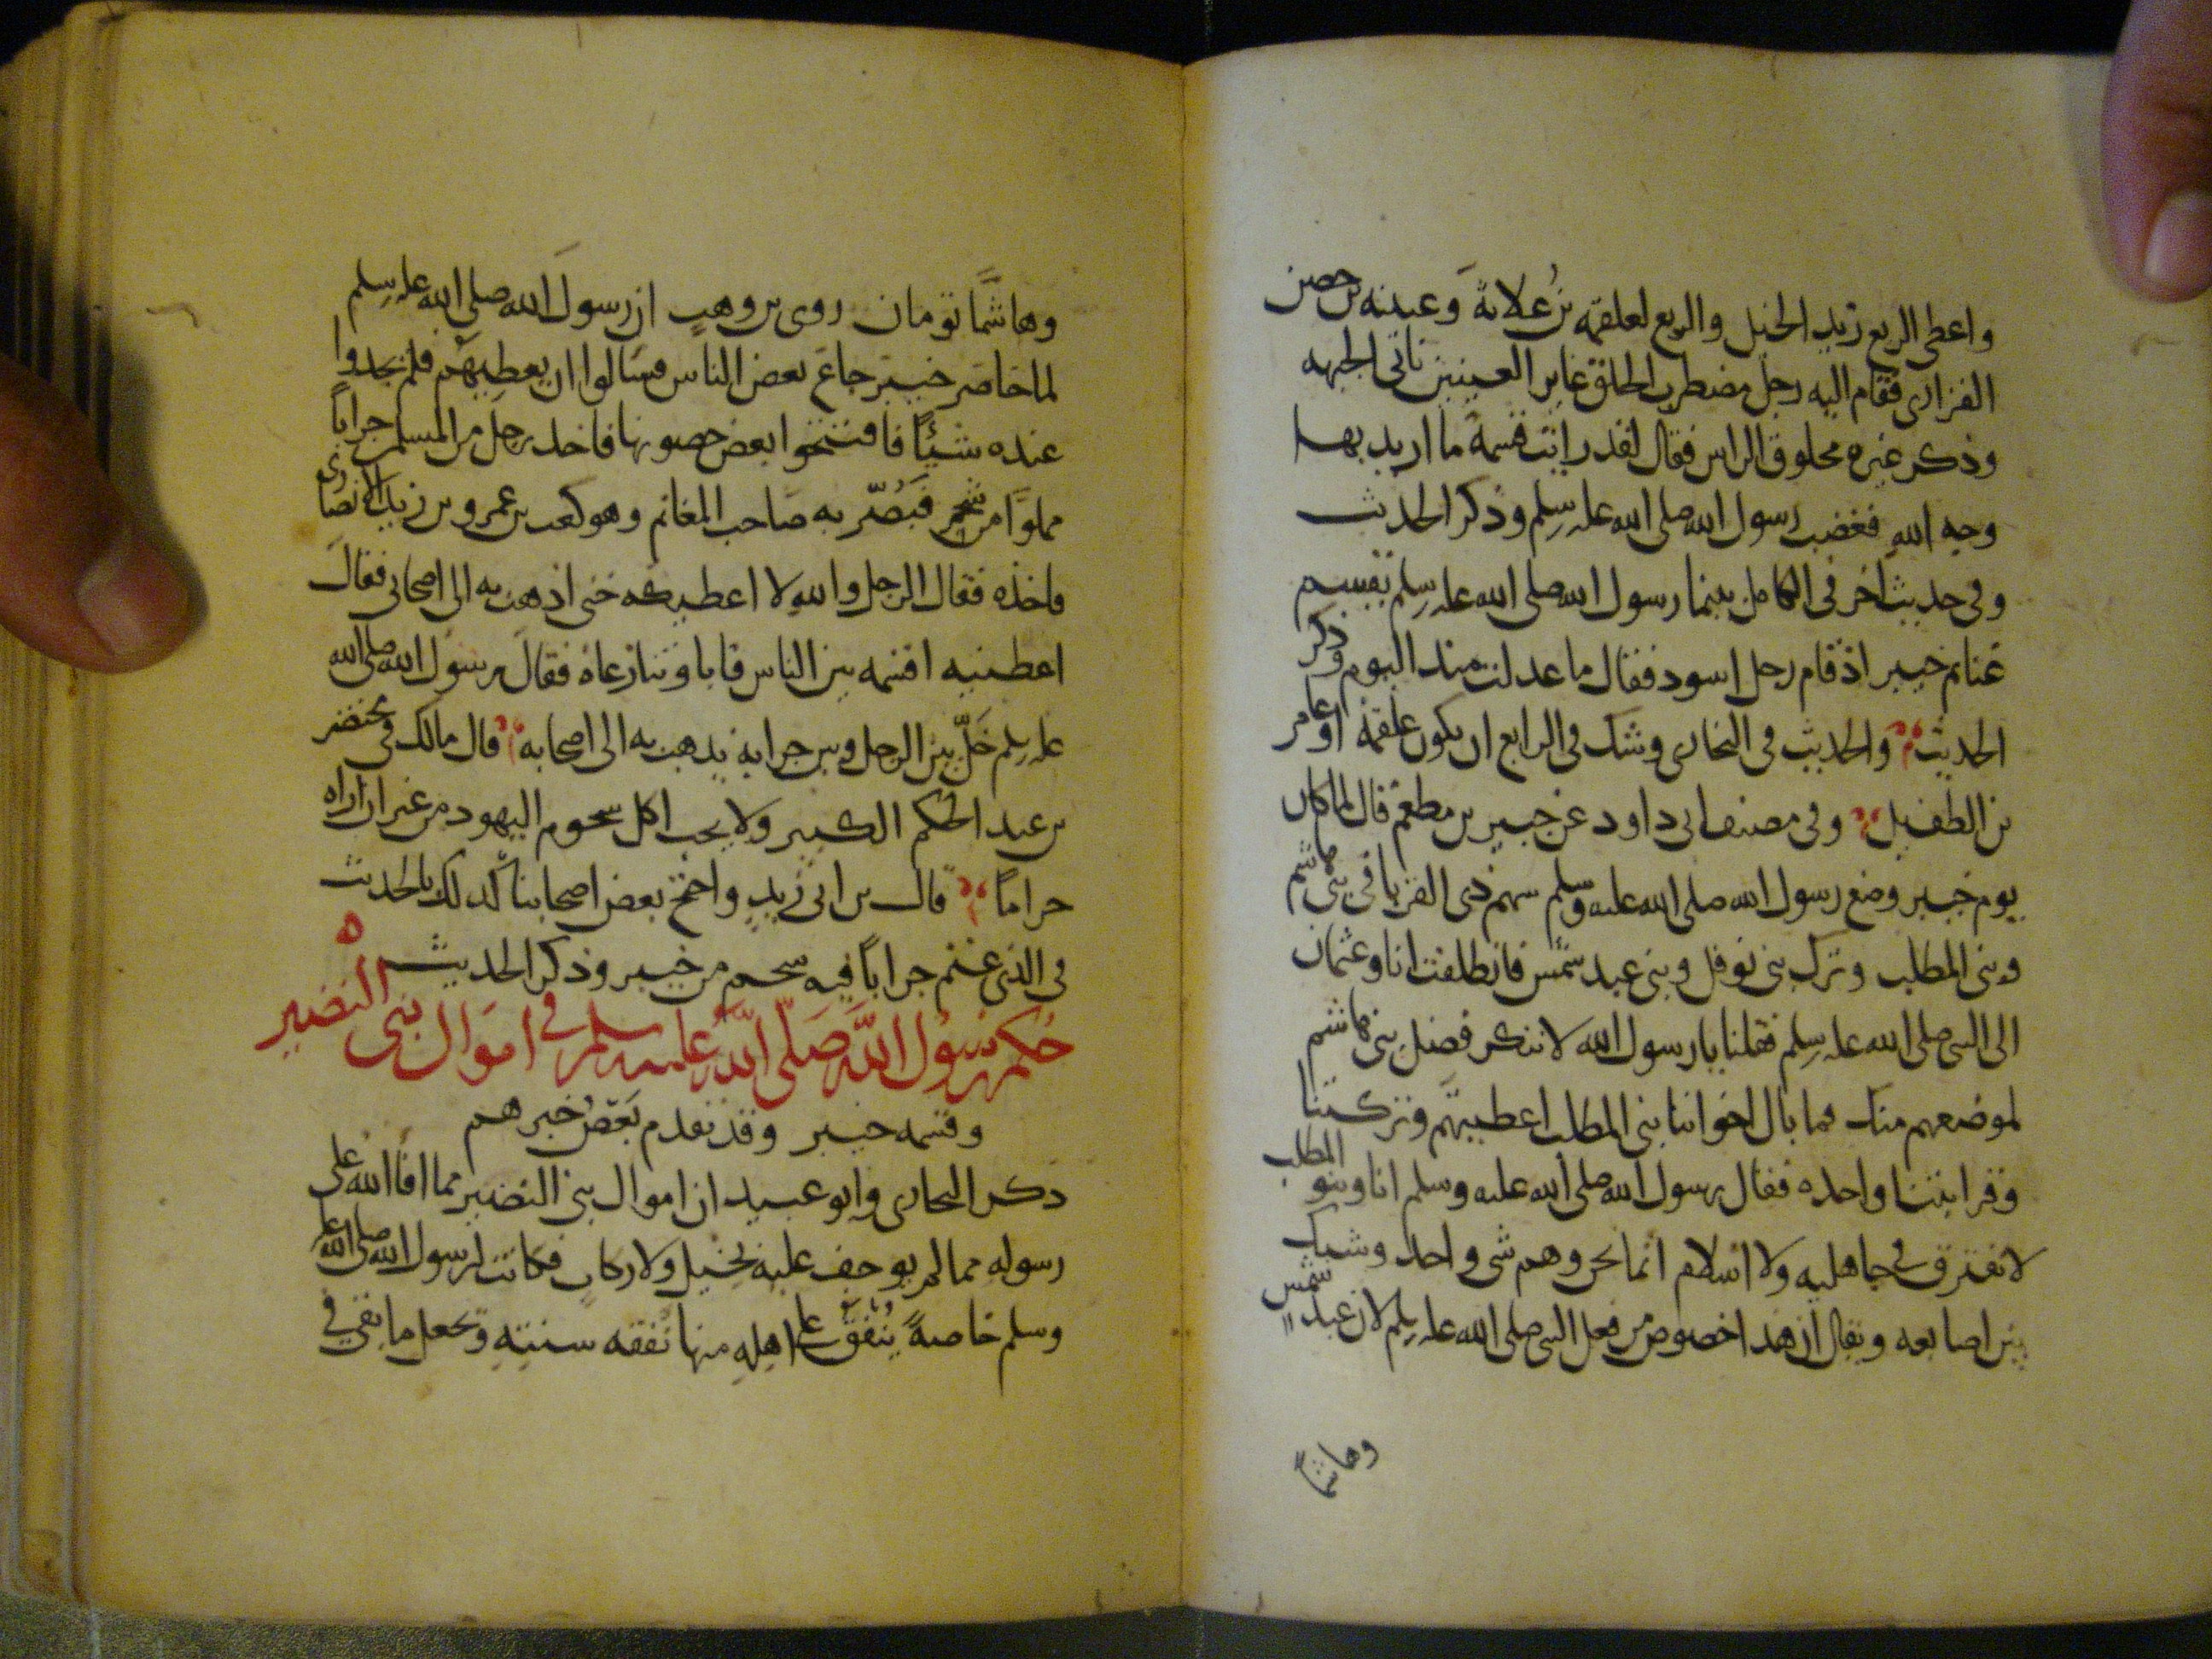 واعطى الربع زيد الخيل والربع لعلقمة بن علاثة وعيينه بن حصن
الفزارى فقام اليه رجل مضطرب الخلق غاير العينين ناتى الجبهه
وذكر غيره محلوق الراس فقال لقد رايت قسمة ما اريد بها
وجه الله فغضب رسول الله صلى الله عليه وسلم وذكر الحديث
وفى حديث اخر فى الكامل بينما رسول الله صلى الله عليه وسلم يقسم
غنائم خيبر اذ قام رجل اسود فقال ما عدلت منذ اليوم وذكر
الحديث والحديث فى البخارى وشك فى الرابع ان يكون علقمة او عامر
بن الطفيل وفى مصنف ابى داود عن جبير بن مطعم قال لما كان
يوم خيبر وضع رسول الله صلى الله عليه وسلم سهم ذى القربا فى بنى هاشم
وبنى المطلب وترك بنى نوفل وبنى عبد شمس فانطلقت انا وعثمان
الى النبى صلى الله عليه وسلم فقلنا يا رسول الله لا ننكر فضل بنى هاشم
لموضعهم منك فما بال اخواننا بنى المطلب اعطيتهم وتركتنا
وقرابتنا واحده فقال رسول الله صلى الله عليه وسلم انا وبنو المطلب
لا نفترق فى جاهليه ولا اسلام انما نحن وهم شى واحد وشبك
بين اصابعه ويقال ان هذا خصوص من فعل النبى صلى الله عليه وسلم لان عبد شمس
وهاشمًا
وهاشمًا توءمان روى بن وهب ان رسول الله صلى الله عليه وسلم
لما حاصر خيبر جاع بعض الناس فسالوا ان يعطيهم فلم يجدوا
عنده شيئًا فافتتحوا بعض حصونها فاخذ رجل من المسلمين جرابًا
مملوًا من شحم فبصر به صاحب المغانم وهو كعب بن عمرو بن زيد الانصارى
فاخذه فقال الرجل والله لا اعطيكه حتى اذهب به الى اصحابى فقال
اعطنيه اقسمه بين الناس فابا وتنازعاه فقال رسول الله صلى الله
عليه وسلم خلّ بين الرجل وبين جرابه يذهب به الى اصحابه قال مالك فى مختصر
بن عبد الحكم الكبير ولا يجب اكل شحوم اليهود من غير ان اراه
حرامًا قال بن ابى زيد واحتج بعض اصحابنا لذلك بالحديث
فى الذى غنم جرابًا فيه شحم من خيبر وذكر الحديث ه
حكم رسول الله صلى الله عليه وسلم فى اموال بنى النضير
وقسمة خيبر وقد تقدم بعض خبرهم
ذكر البخارى وابو عبيد ان اموال بنى النضير مما افا الله على
رسوله مما لم يوجف عليه بخيل ولا ركاب فكانت لرسول الله صلى الله عليه
وسلم خاصةً ينفق على اهله منها نفقه سنته ويجعل ما بقى فى